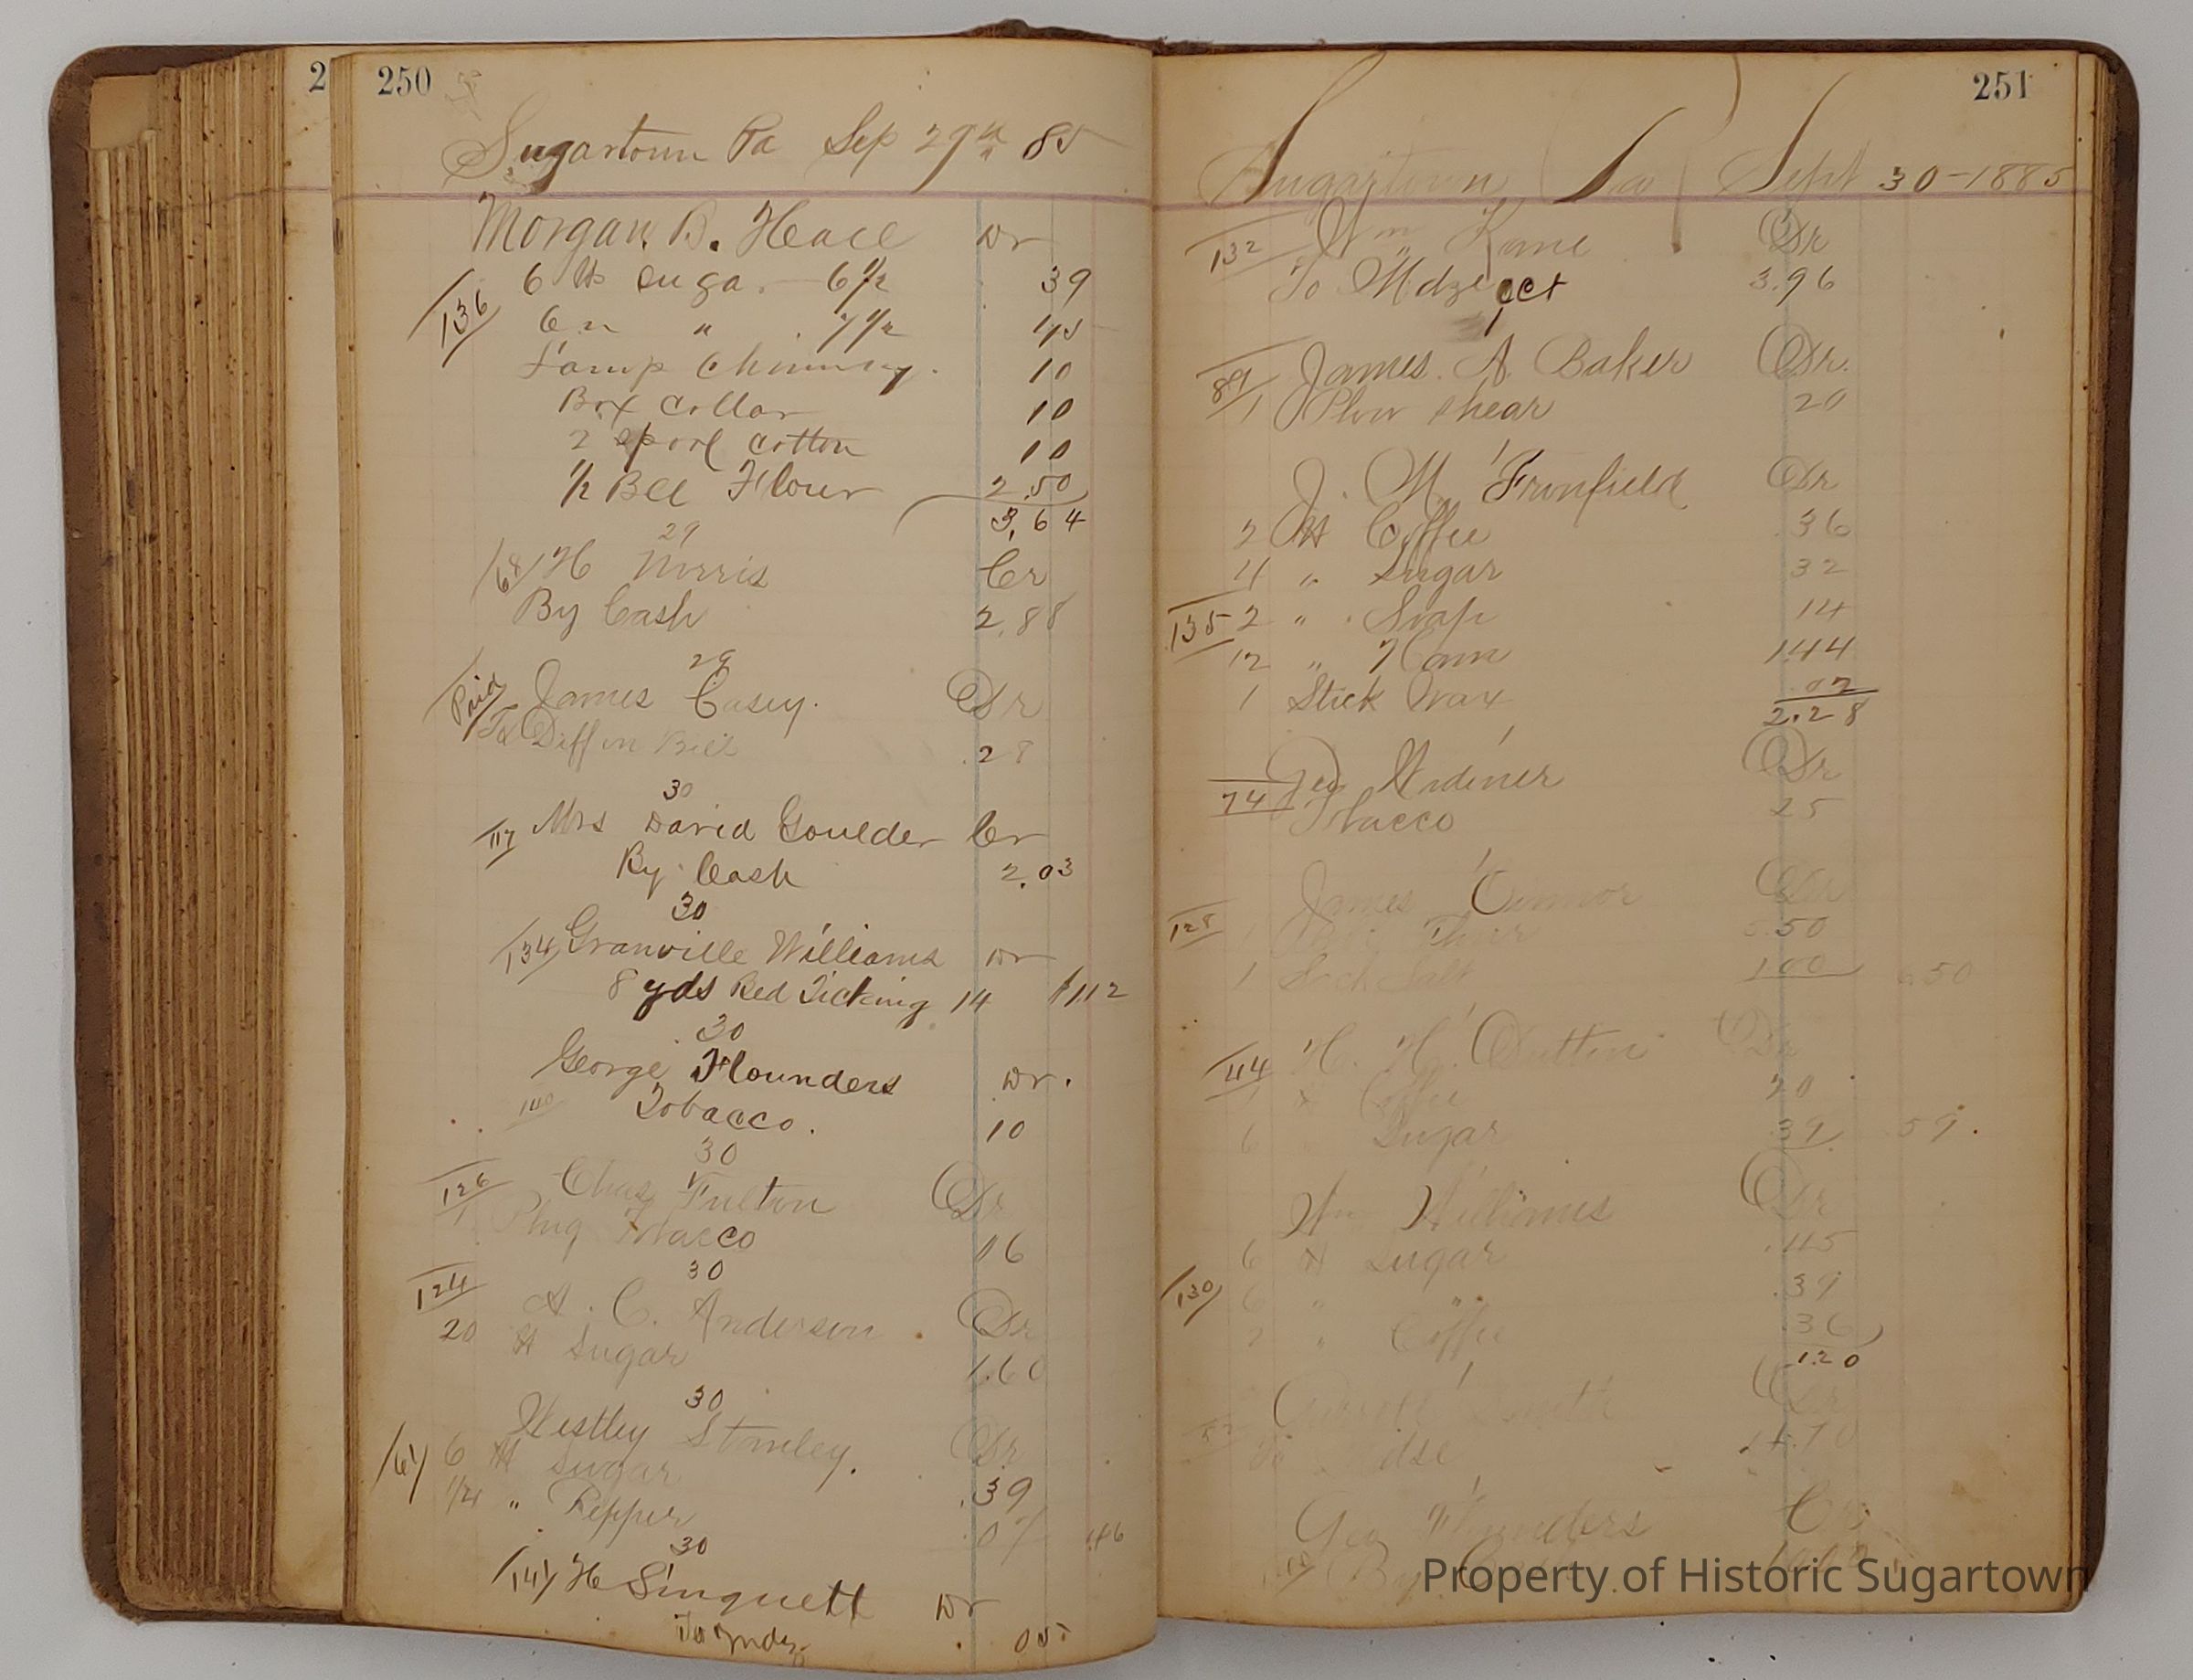 2
250
Sugartown Pa Sep 29th 85
Morgan B. Heace Dr
136
6 lb suga. 6 1/2 39
6 " " 7 1/2 45
Lamp Chimney. 10
Box Collar 10
2 spool cotton 10
1/2 Bll Flour 2.50
3,64
29
68 H Norris Cr
By Cash 2.88
29
Paid James Casey. Dr
To Diff in Bill .28
30
117 Mrs David Goulder Cr
By Cash 2.03
30
134 Granville Williams Dr
8 yds Red Ticking 14 $1.12
30
George Flounders Dr.
140 Tobacco. 10
30
126 Chas Fulton Dr
1 Plug Tobacco 16
30
124 A. C. Anderson Dr
20 lb Sugar 1.60
30
Westley Stanley. Dr
61 6 lb Sugar .39
1/4 " Pepper .07 .46
30
141 H Singuett Dr
To Mdz .05
251
Sugartown Pa Sept 30-1885
132 Wm Kane Dr
To Mdze act 3.96
"
89 James A. Baker Dr.
1 Plow shear 20
"
J. M. Frunfield Dr
2 lb Coffee .36
4 " Sugar 32
135 2 " Soap 14
12 " Ham 1.44
1 Stick Wax .02
2.28
Geo Widener Dr
74 Tobacco 25
James Connor Dr
128 1 5.50
1 Sack Salt 100 6.50
H. H. Dutton Dr
114 1 lb Coffee 20
6 " Sugar .39 .59.
Wm Williams Dr
6 lb Sugar .45
130 6 " " .39
2 " Coffee .36
1.20
Smith Dr
To Mdse
Geo Flounders Cr
By
Property of Historic Sugartown